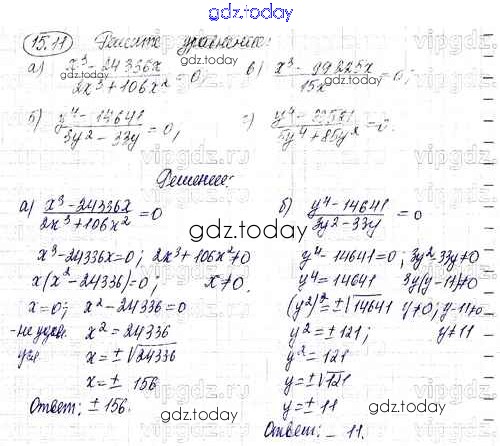 gdz.today
15.11 Решить уравнение:
а) x³-24336x / 2x³+106x² = 0, в) x³-19225x / 15x = 0,
б) y⁴-14641 / 3y²-33y = 0, г) = 0.
Решение:
а) x³-24336x / 2x³+106x² = 0
x³-24336x=0; 2x³+106x²≠0
x(x²-24336)=0; x≠0.
x=0; x²-24336=0
x²=24336
x=±√24336
x=± 156
Ответ: ±156.
б) y⁴-14641 / 3y²-33y = 0
y⁴-14641=0; 3y²-33y≠0
y⁴=14641 3y(y-11)≠0
(y²)²=±√14641 y≠0; y-11≠0
y²=±121; y≠11
y²=121
y=±√121
y=± 11
Ответ: -11.
gdz.today
gdz.today
gdz.today
gdz.today
gdz.today